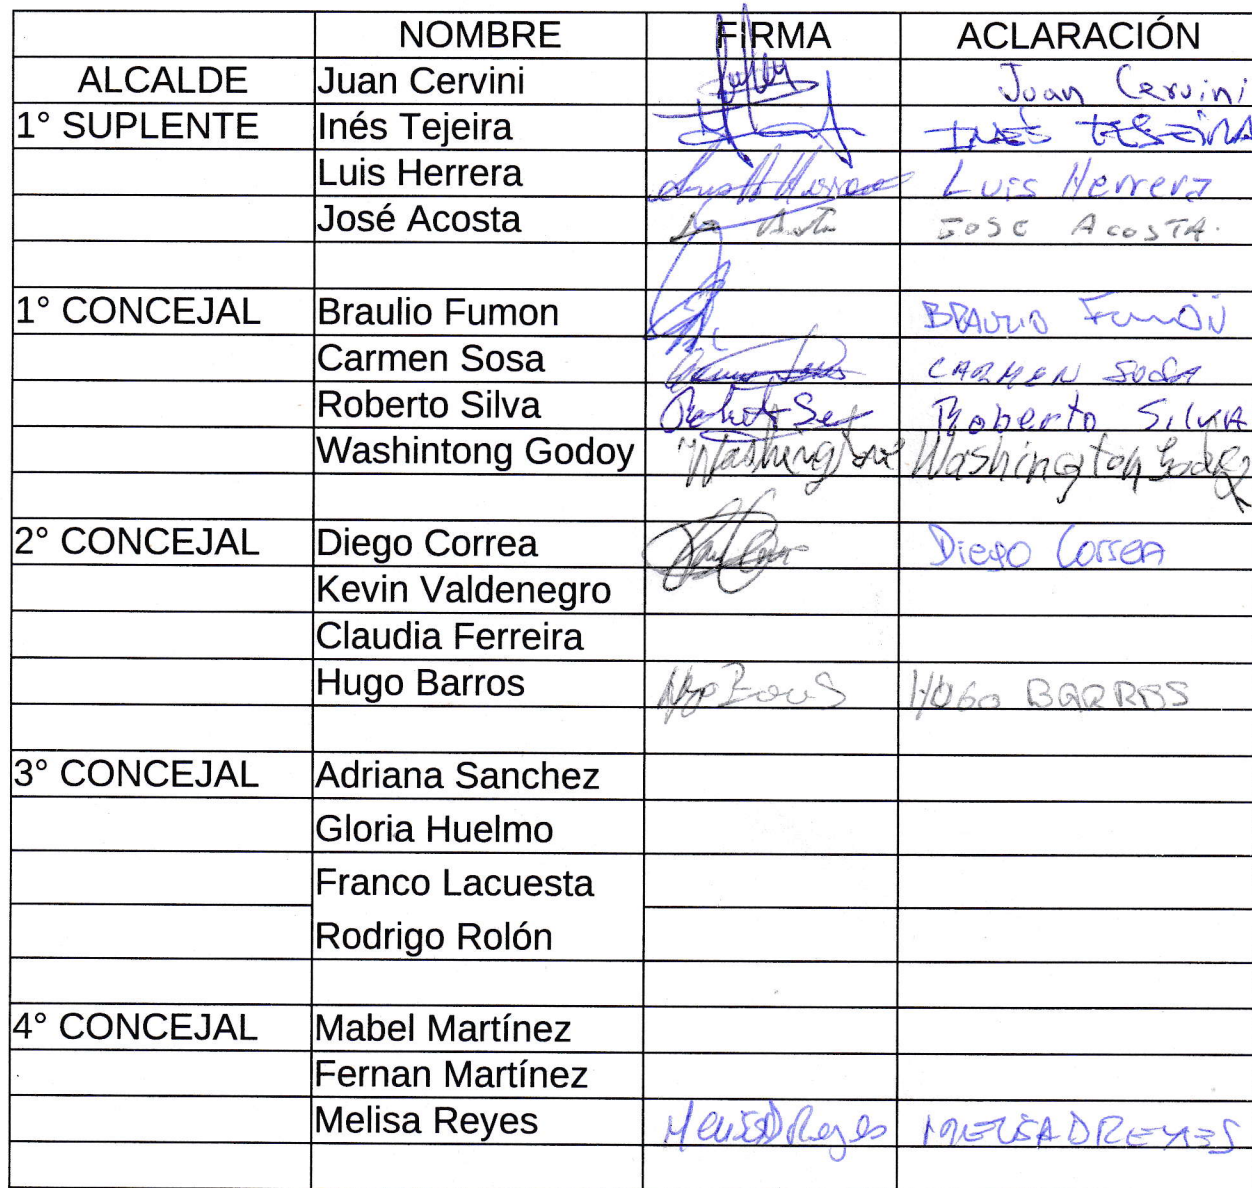 NOMBRE FIRMA ACLARACIÓN
ALCALDE Juan Cervini Juan Cervini
1° SUPLENTE Inés Tejeira INÉS TEJEIRA
Luis Herrera Luis Herrera
José Acosta JOSE ACOSTA.
1° CONCEJAL Braulio Fumon BRAULIO Fumón
Carmen Sosa CARMEN SOSA
Roberto Silva Roberto SILVA
Washintong Godoy Washington Godoy
2° CONCEJAL Diego Correa Diego Correa
Kevin Valdenegro
Claudia Ferreira
Hugo Barros HUGO BARROS
3° CONCEJAL Adriana Sanchez
Gloria Huelmo
Franco Lacuesta
Rodrigo Rolón
4° CONCEJAL Mabel Martínez
Fernan Martínez
Melisa Reyes Melisa D Reyes MELISA D REYES